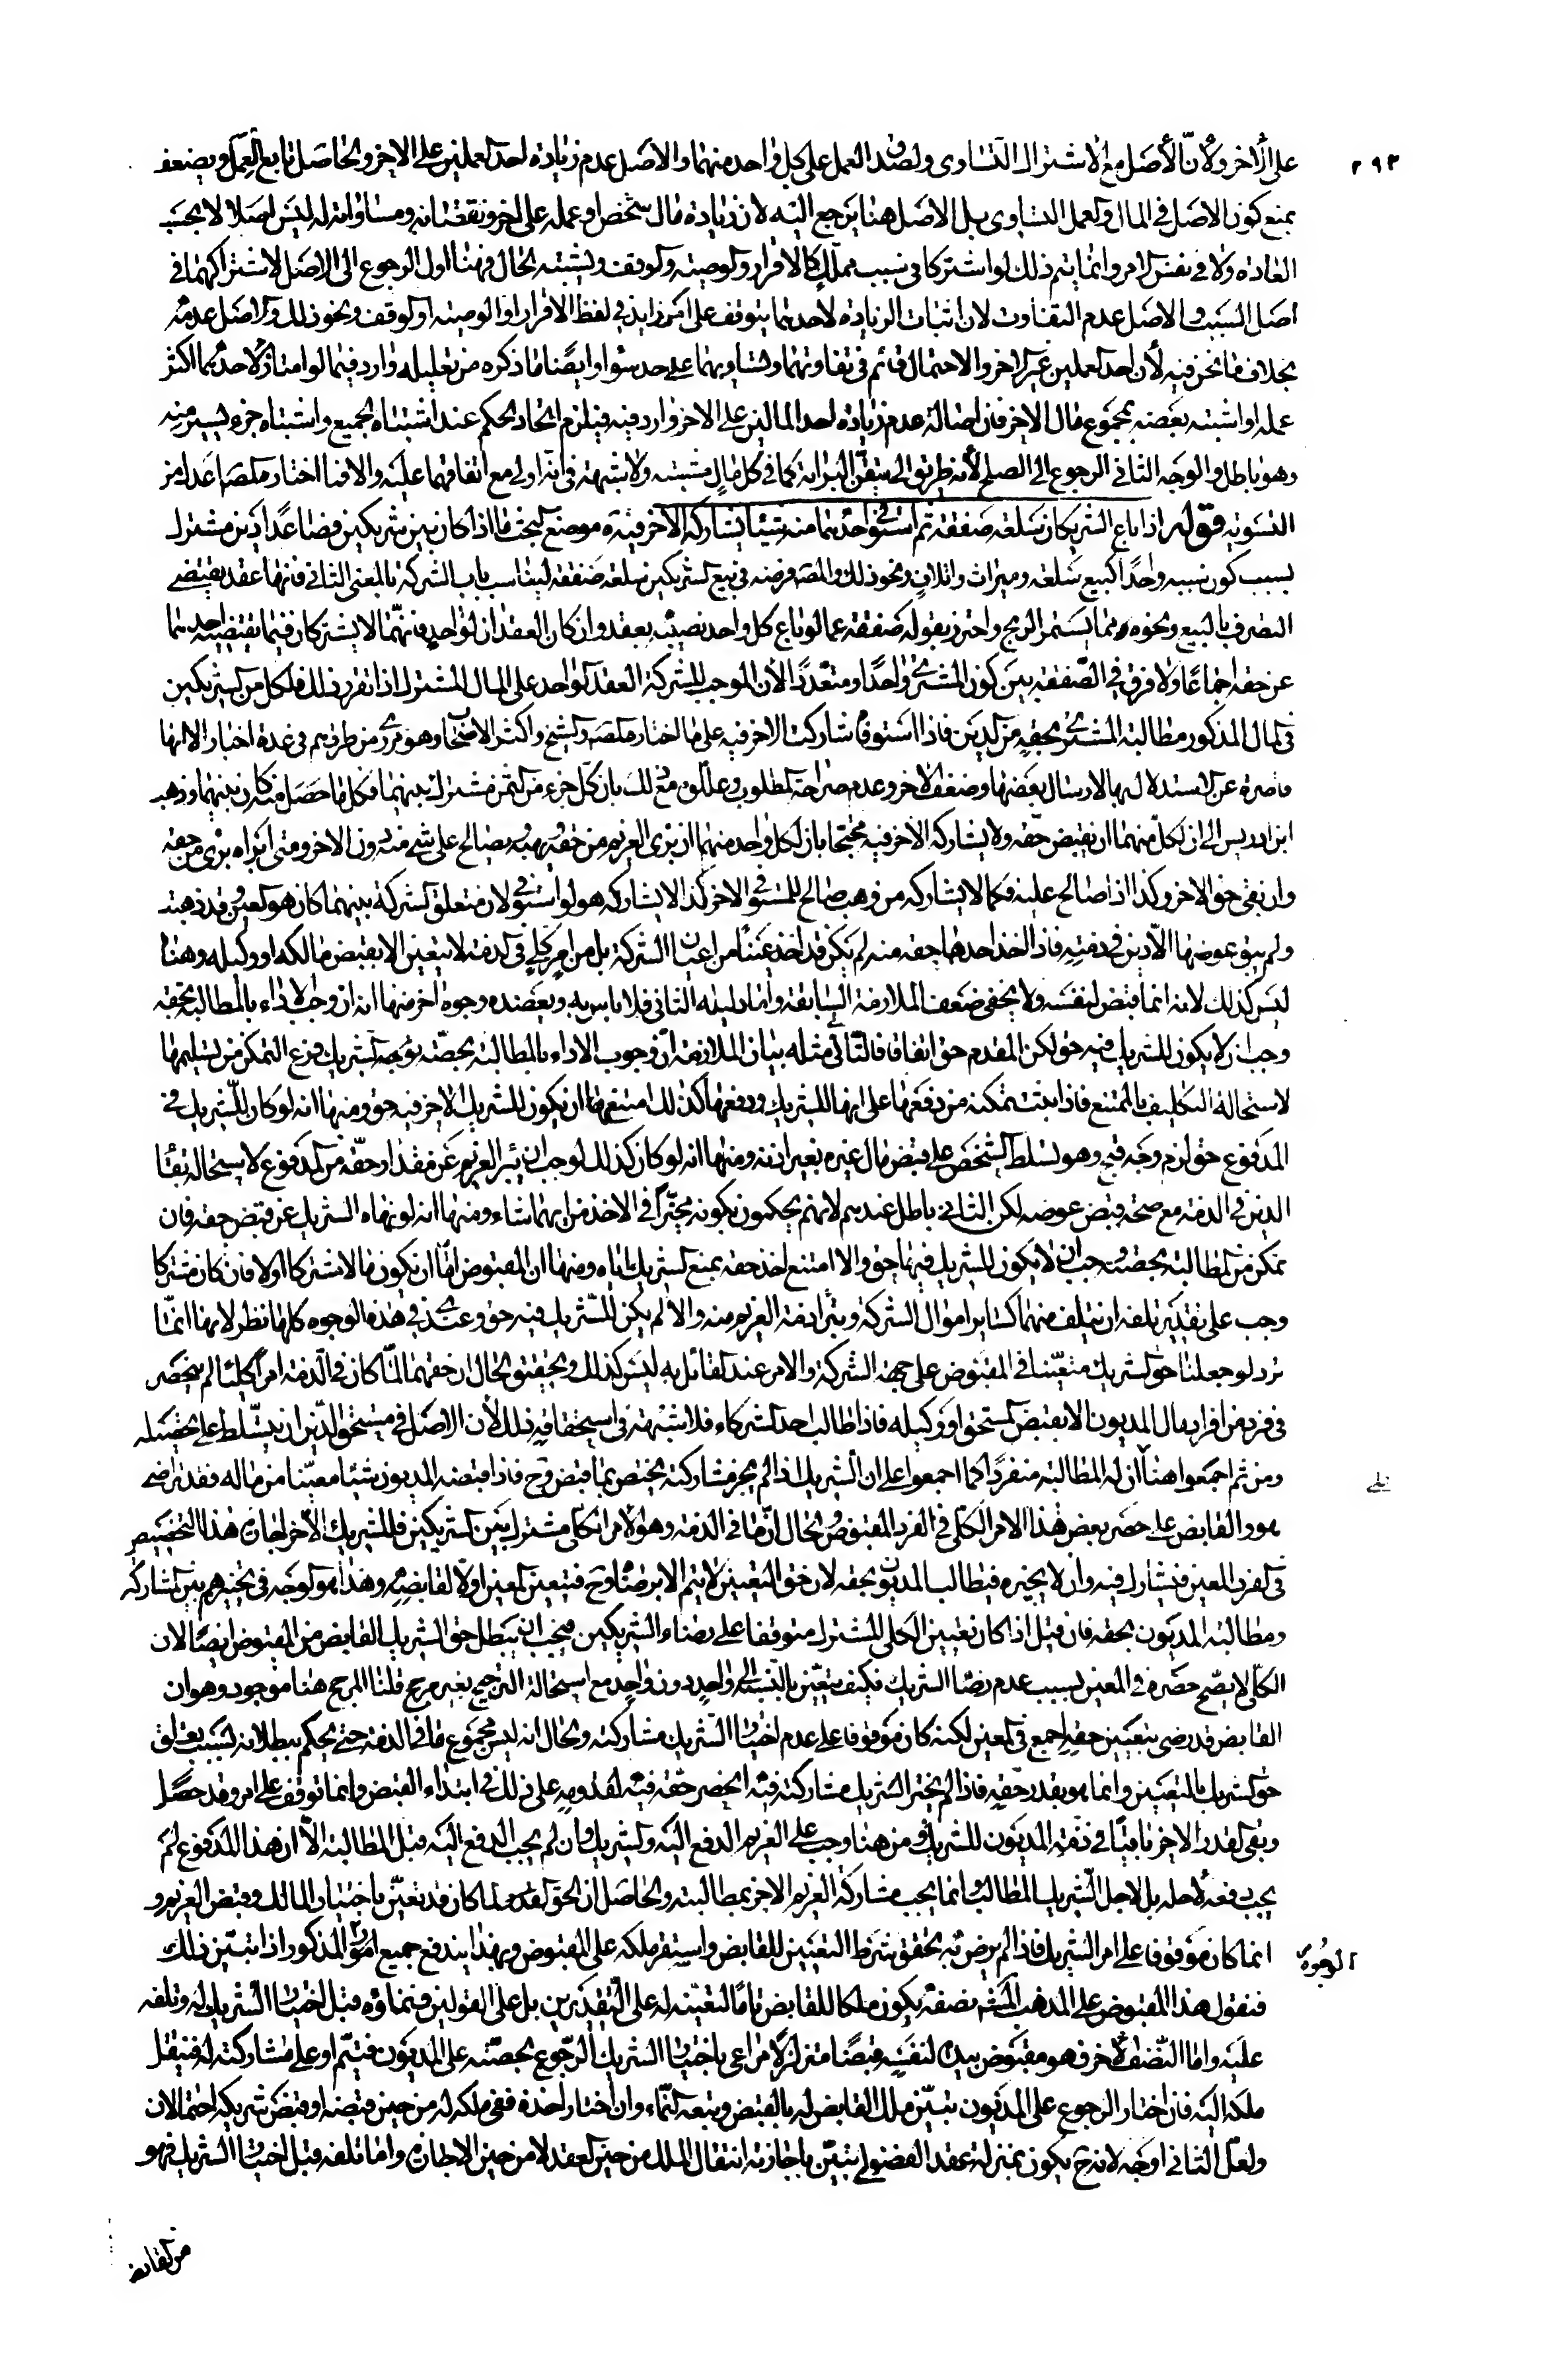 ٢٩٣
على الآخر ولأن الأصل مع الاشتراك التساوى ولصدق العمل على كل واحد منهما والاصل عدم زيادة احد العملين على الاخر والحاصل تابع للعمل ويضعف
بمنع كون الاصل فى المال والعمل التساوى بل الاصل هنا يرجع اليه لان زيادة مال شخص او عمله على اخر ونقصانه ومساواته له ليس اصلا لا بحسب
العادة ولا فى نفس الامر وانما يتم ذلك لو اشتركا فى سبب مملك كالاقرار والوصية والوقف ويشتبه الحال فهنا اول الرجوع الى الاصل لاشتراكهما فى
اصل السبب والاصل عدم التفاوت لان اثبات الزيادة لاحدهما يتوقف على امر زايد فى لفظ الاقرار او الوصية او الوقف ونحو ذلك والاصل عدمه
بخلاف ما نحن فيه لأن احد العملين غير الاخر والاحتمال قائم فى تفاوتهما وتساويهما على حد سواء وايضا ما ذكره من تعليله وارد فيما لو امتاز لاحدهما اكثر
عمله او اشتبه بعضه بمجموع مال الاخر فان اصالة عدم زيادة احد المالين على الاخر وارد فيه فيلزم اتحاد الحكم عند اشتباه الجميع واشتباه جزء يسير منه
وهو باطل والوجه الثانى الرجوع الى الصلح لأنه طريق الى تيقن البراءة كما فى كل مال مشتبه ولا شبهة فى انه اولى مع اتفاقهما عليه والا فما اختاره المص اعدل من
التسوية قوله اذا باع الشريكان سلعة صفقة ثم استوفى احدهما منه شيئا يشاركه الاخر فيه موضع البحث ما اذا كان بين شريكين فصاعدا دين مشترك
بسبب كون سببه واحدا كبيع سلعة وميراث واتلاف ونحو ذلك والمص فرضه فى بيع الشريكين سلعة صفقة ليناسب باب الشركة بالمعنى الثانى فانها عقد يقتضى
التصرف بالبيع ونحوه مما يستثمر الربح واحترز بقوله صفقة عما لو باع كل واحد نصيبه بعقد وان كان العقدان لواحد فانهما لا يشتركان فيما يقتضيه احدهما
عن حقه اجماعا ولا فرق فى الصفقة بين كون المشترى واحدا ومتعددا لأن الموجب للشركة العقد الواحد على المال المشترك اذا تقرر ذلك فلكل من الشريكين
فى المال المذكور مطالبة المشترى بحقه من الدين فاذا استوفاه شاركه الاخر فيه على ما اختاره المص والشيخ واكثر الاصحاب وهو مروى من طرقهم فى عدة اخبار الا انها
قاصرة عن الاستدلال بها لارسال بعضها وضعف الاخر وعدم صراحة المطلوب وعللوه مع ذلك بان كل جزء من الثمن مشترك بينهما فكل ما حصل منه كان بينهما وذهب
ابن ادريس الى ان لكل منهما ان يقبض حقه ولا يشاركه الاخر فيه محتجا بان لكل واحد منهما ان يبرئ الغريم من حقه ويهبه ويصالح على شىء منه دون الاخر ومتى ابرأه برئ من حقه
وان بقى حق الاخر وكذا اذا صالح عليه فكما لا يشاركه من وهب او صالح للمستوفى الاخر كذا لا يشاركه هو لو استوفى لان متعلق الشركة بينهما كان هو العين وقد ذهبت
ولم يبق عوضها الا دين فى ذمته فاذا اخذ احدهما حقه منه لم يكن قد اخذ عينا من اعيان الشركة بل من امر كلى فى الذمة لا يتعين الا بقبض مالكه او وكيله وهنا
ليس كذلك لانه انما قبض لنفسه ولا يخفى ضعف الملازمة السابقة واما دليله الثانى فلا باس به ويعضده وجوه اخر منها انه ان وجب الاداء بالمطالبة بحقه
وجب ان لا يكون للشريك فيه حق لكن المقدم حق اتفاقا فالتالى مثله بيان الملازمة ان وجوب الاداء بالمطالبة بحصته فرع التمكن من تسليمها
لاستحالة التكليف بالممتنع فاذا ثبت تمكنه من دفعها على انها للشريك ودفعها كذلك امتنع ان يكون للشريك الاخر فيه حق ومنها انه لو كان للشريك فى
المدفوع حق لزم وجه قبح وهو تسلط الشخص على قبض مال غيره بغير اذنه ومنها انه لو كان كذلك لوجب ان يبرأ الغريم عن مقدار حقه من المدفوع لاستحالة بقاء
الدين فى الذمة مع صحة قبض عوضه لكن التالى باطل عندهم لانهم يحكمون بكونه مخيرا فى الاخذ من ايهما شاء ومنها انه لو نهاه الشريك عن قبض حقه فان
تمكن من المطالبة بحصته وجب ان لا يكون للشريك فيها حق والا امتنع اخذ حقه بمنع الشريك اياه ومنها ان المقبوض اما ان يكون مالا مشتركا اولا فان كان مشتركا
وجب على تقدير تلفه ان يتلف منهما كساير اموال الشركة وتبرأ ذمة الغريم منه والا لم يكن للشريك فيه حق وعندى فى هذه الوجوه كلها نظر لانها انما
ترد لو جعلنا حق الشريك متعينا فى المقبوض على جهة الشركة والامر عند القائل به ليس كذلك وتحقيق الحال ان حقهما لما كان فى الذمة امرا كليا لم ينحصر
فى فرد من افراد مال المديون الا بقبض المستحق او وكيله فاذا طالب احد الشركاء فلا شبهة فى استحقاقه ذلك لأن الاصل فى مستحق الدين ان يتسلط على تحصيله
ومن ثم اجمعوا هنا على ان له المطالبة منفردا كما اجمعوا على ان الشريك اذا لم يجز مشاركته يختص بما قبض وح فاذا قبضه المديون شيئا معينا من ماله فقد تراضى
هو والقابض على حصر بعض هذا الامر الكلى فى الفرد المقبوض والحال ان ما فى الذمة وهو الامر الكلى مشترك بين الشريكين فللشريك الاخر اجازة هذا التخصيص
فى الفرد المعين فيشارك فيه وان لا يجيزه فيطالب المديون بحقه لان حق التعيين لا يتم الا برضاه وح فيتعين المعين اولا لقابضه وهذا هو الوجه فى تخييرهم بين المشاركة
ومطالبة المديون بحقه فان قيل اذا كان تعيين الكلى المشترك متوقفا على رضاء الشريكين فيجب ان يبطل حق الشريك القابض من المقبوض ايضا لان
الكلى لا يصح حصره فى المعين بسبب عدم رضا الشريك فكيف يتعين بالنسبة الى واحد دون واحد مع استحالة الترجيح بغير مرجح قلنا المرجح هنا موجود وهو ان
القابض قد رضى بتعيين حقه اجمع فى المعين لكنه كان موقوفا على عدم اختيار الشريك مشاركته والحال انه ليس مجموع ما فى الذمة حتى يحكم ببطلانه بسبب تعلق
حق الشريك بالتعيين وانما هو بقدر حقه فاذا لم يختر الشريك مشاركته فيه انحصر حقه فيه لقدومه على ذلك فى ابتداء القبض وانما توقف على امر وقد حصل
وبقى القدر الاخر باقيا فى ذمة المديون للشريك ومن هنا وجب على الغريم الدفع اليه والشريك وان لم يجب الدفع اليه قبل المطالبة الا ان هذا المدفوع لم
يجب دفعه لأجله بل لاجل الشريك المطالب وانما يجب مشاركة الغريم الاخر بمطالبته والحاصل ان الحق كان قد تعين باختيار المالك وقبض الغريم و
انما كان موقوفا على امر الشريك فاذا لم يرض به تحقق شرط التعيين للقابض واستقر ملكه على المقبوض وبهذا يندفع جميع الوجوه المذكور اذا تبين ذلك
فنقول هذا المقبوض على المذهب المشهور نصفه يكون ملكا للقابض تاما لتعيينه له على التقديرين بل على القولين فنماؤه قبل اختيار الشريك له وتلفه
عليه واما النصف الاخر فهو مقبوض بيده لنفسه قبضا متزلزلا مراعى باختيار الشريك الرجوع بحصته على المديون فيتم او على مشاركته له فينتقل
ملكه اليه فان اختار الرجوع على المديون تبين ملك القابض له بالقبض وتبعه النماء وان اختار اخذه ففى ملكه له من حين قبضه او قبض شريكه احتمالان
ولعل الثانى اوجه لانه ح يكون بمنزلة عقد الفضولى تبين باجازته انتقال الملك من حين العقد لا من حين الاجازة واما تلفه قبل اختيار الشريك فهو
من القابض